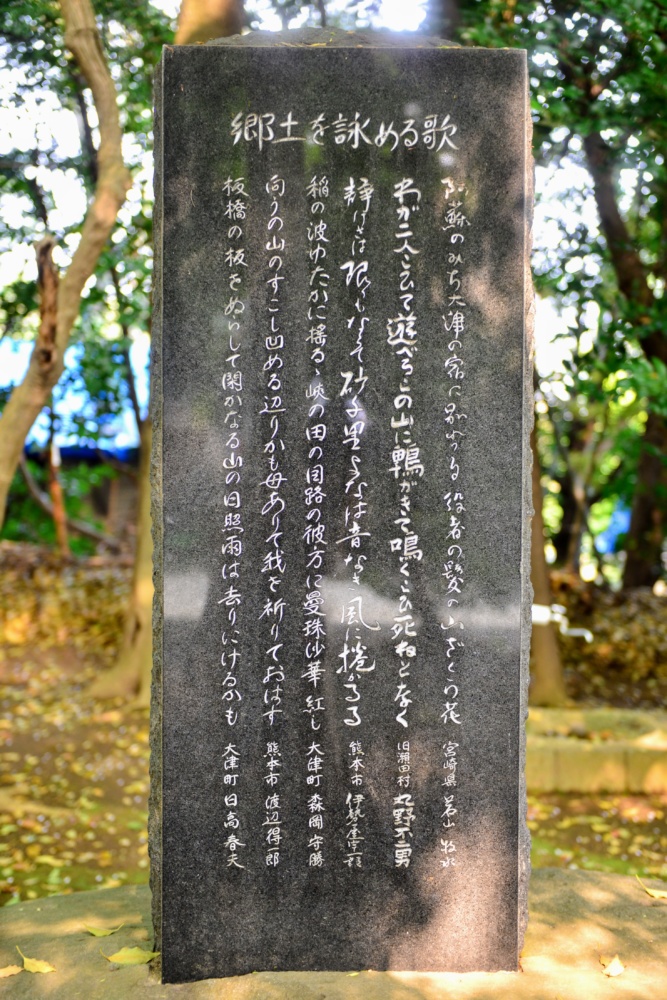 郷土を詠める歌
阿蘇のみち大津の宿に別れつる役者の髪の山ざくら花 宮崎県 若山 牧水
わが二人こひて遊べるこの山に鴨がきて鳴くこひ死ねとなく 旧瀬田村 丸野不二男
静けさは限りもなくて砂千里よなは音なき風に捲かるる 熊本市 伊勢屋
稲の波ゆたかに揺るゝ峡の田の目路の彼方に曼珠沙華紅し 大津町 森岡 守勝
向うの山のすこし凹める辺りかも母ありて我を祈りておはす 熊本市 渡辺得一郎
板橋の板をぬらして閑かなる山の日照雨は去りにけるかも 大津町 日高 春夫